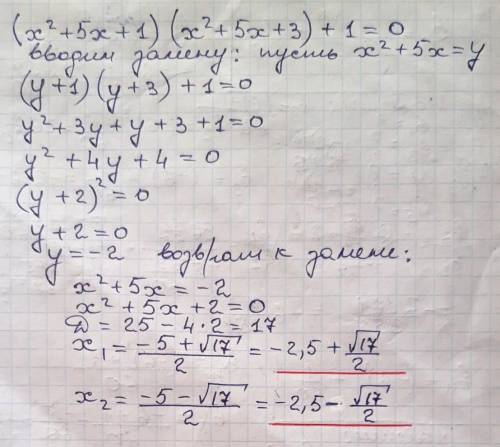 (x²+5x+1)(x²+5x+3)+1=0
вводим замену: пусть x²+5x=y
(y+1)(y+3)+1=0
y²+3y+y+3+1=0
y²+4y+4=0
(y+2)²=0
y+2=0
y=-2 возвр/гаем к замене:
x²+5x=-2
x²+5x+2=0
D=25-4·2=17
x₁=(-5+√17)/2=-2,5+√17/2
x₂=(-5-√17)/2=-2,5-√17/2